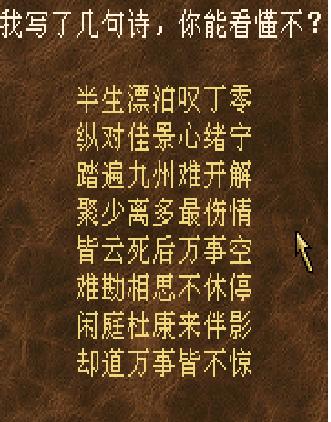 我写了几句诗，你能看懂不？
半生漂泊叹丁零
纵对佳景心绪宁
踏遍九州难开解
聚少离多最伤情
皆云死后万事空
难勘相思不休停
闲庭杜康来伴影
却道万事皆不惊